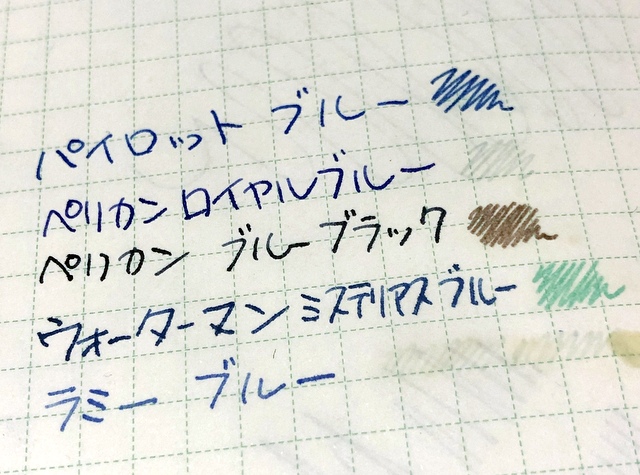 パイロット ブルー
ペリカン ロイヤルブルー
ペリカン ブルーブラック
ウォーターマン ミステリアスブルー
ラミー ブルー